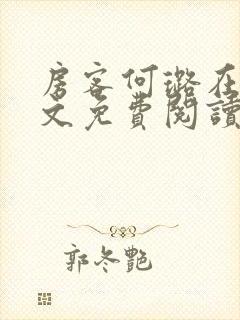 房客何璐在
文免費閱讀
郭冬艷